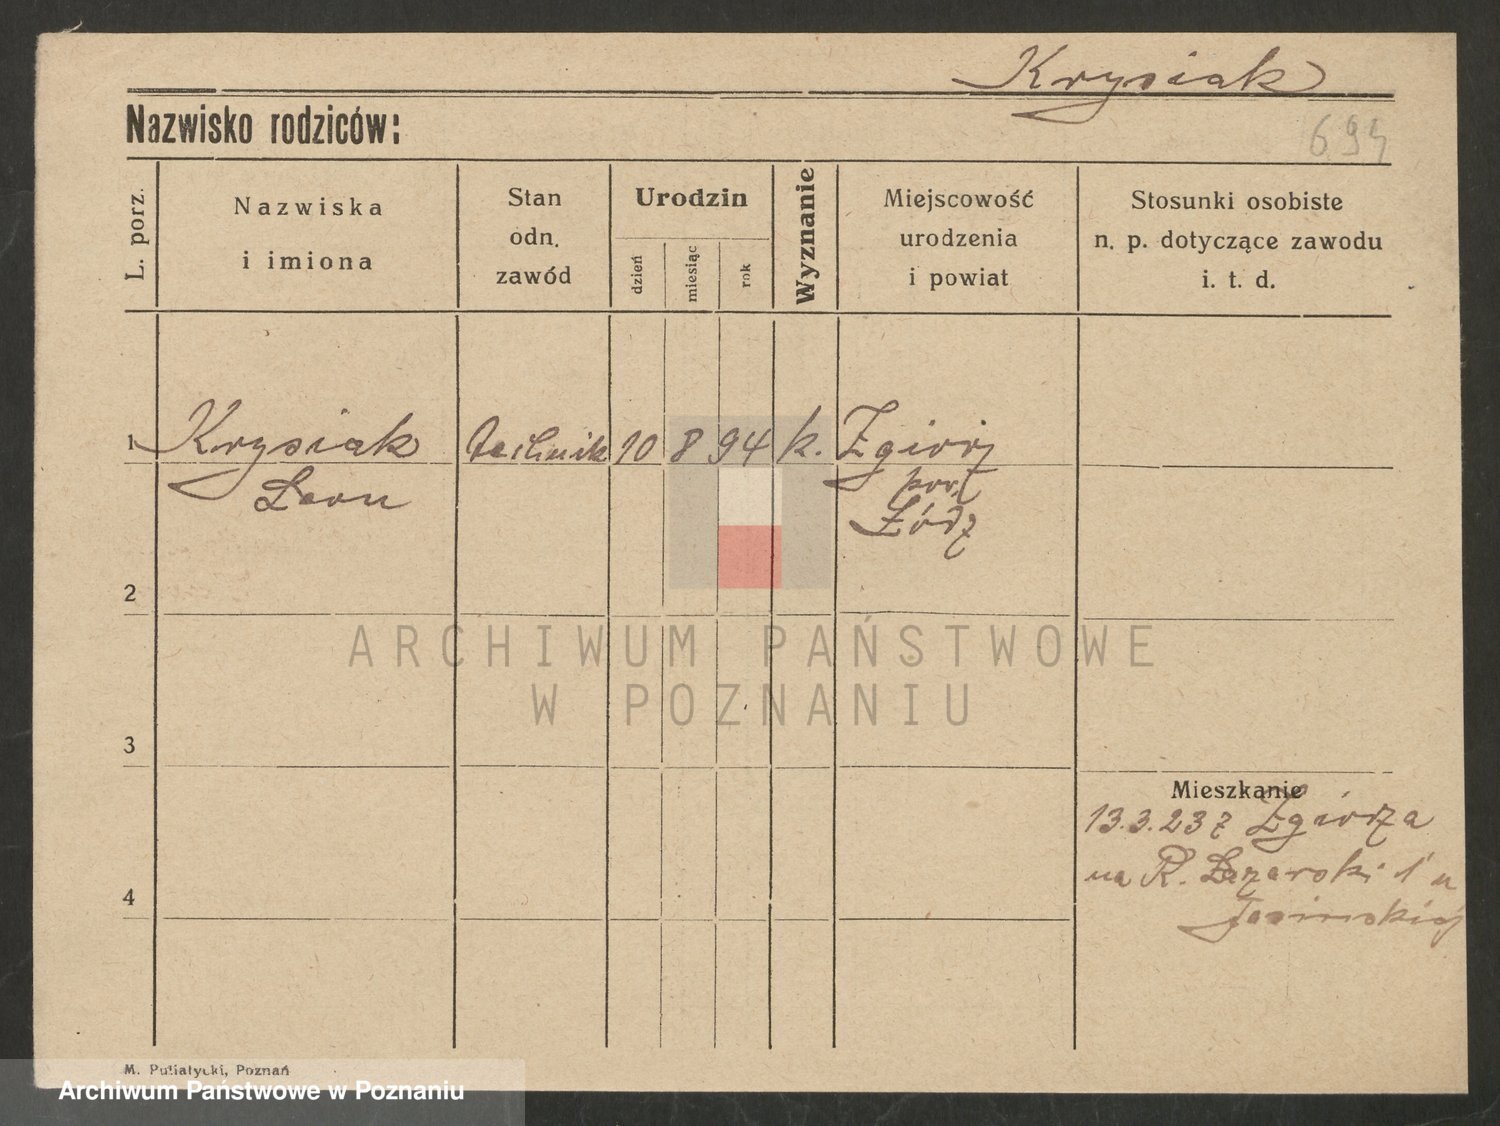 Krysiak
Nazwisko rodziców:
694
L. porz.
Nazwiska
i imiona
Stan
odn.
zawód
Urodzin
dzień
miesiąc
rok
Wyznanie
Miejscowość
urodzenia
i powiat
Stosunki osobiste
n. p. dotyczące zawodu
i. t. d.
1 Krysiak technik 10 8 94 k. Zgierz
Leon
pow.
Łódź
2
ARCHIWUM PAŃSTWOWE
W POZNANIU
3
Mieszkanie
13.3.23 z Zgierza
na R. Łazarski 1 u
Jasińskiej
4
M. Putiatycki, Poznań
Archiwum Państwowe w Poznaniu